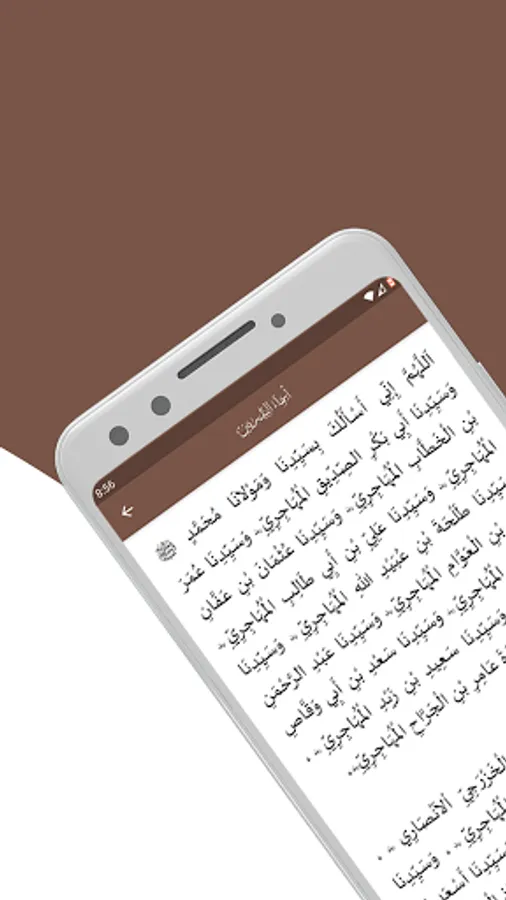 8:56
أسماء البدريين
اَللّٰهُمَّ إِنِّي أَسْأَلُكَ بِسَيِّدِنَا وَمَوْلَانَا مُحَمَّدٍ ﷺ
وَسَيِّدِنَا أَبِي بَكْرٍ الصِّدِّيقِ الْمُهَاجِرِيِّ وَسَيِّدِنَا عُمَرَ
بْنِ الْخَطَّابِ الْمُهَاجِرِيِّ وَسَيِّدِنَا عُثْمَانَ بْنِ عَفَّانِ
الْمُهَاجِرِيِّ وَسَيِّدِنَا عَلِيِّ بْنِ أَبِي طَالِبِ الْمُهَاجِرِيِّ
سَيِّدِنَا طَلْحَةَ بْنِ عُبَيْدِ اللهِ الْمُهَاجِرِيِّ وَسَيِّدِنَا
بْنِ الْعَوَّامِ الْمُهَاجِرِيِّ وَسَيِّدِنَا عَبْدِ الرَّحْمٰنِ
الْمُهَاجِرِيِّ وَسَيِّدِنَا سَعْدِ بْنِ أَبِي وَقَّاصِ
وَسَيِّدِنَا سَعِيدِ بْنِ زَيْدِ الْمُهَاجِرِيِّ
عَامِرِ بْنِ الْجَرَّاحِ الْمُهَاجِرِيِّ
الْخَزْرَجِيِّ الْأَنْصَارِي
الْمُهَاجِرِيِّ وَسَيِّدِنَا
سَيِّدِنَا أَسْعَدَ